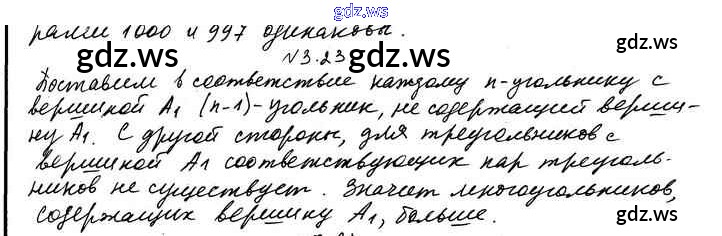 gdz.ws
рами 1000 и 997 одинаковы.
gdz.ws gdz.ws
N3.23
Поставим в соответствие каждому n-угольнику с
вершиной A₁ (n-1)-угольник, не содержащий верши-
ну A₁. С другой стороны, для треугольников с
вершиной A₁ соответствующих пар треуголь-
ников не существует. Значит многоугольников,
содержащих вершину A₁, больше.
gdz.ws gdz.ws